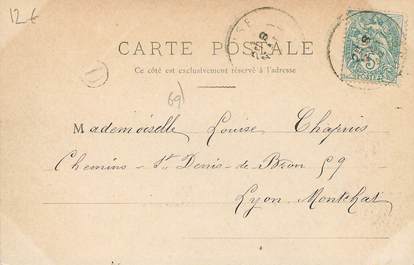 12 €
CARTE POSTALE
Ce côté est exclusivement réservé à l'adresse
69)
Mademoiselle Louise Chapuis
Chemins - St Denis - de Bron 59
Lyon Montchat